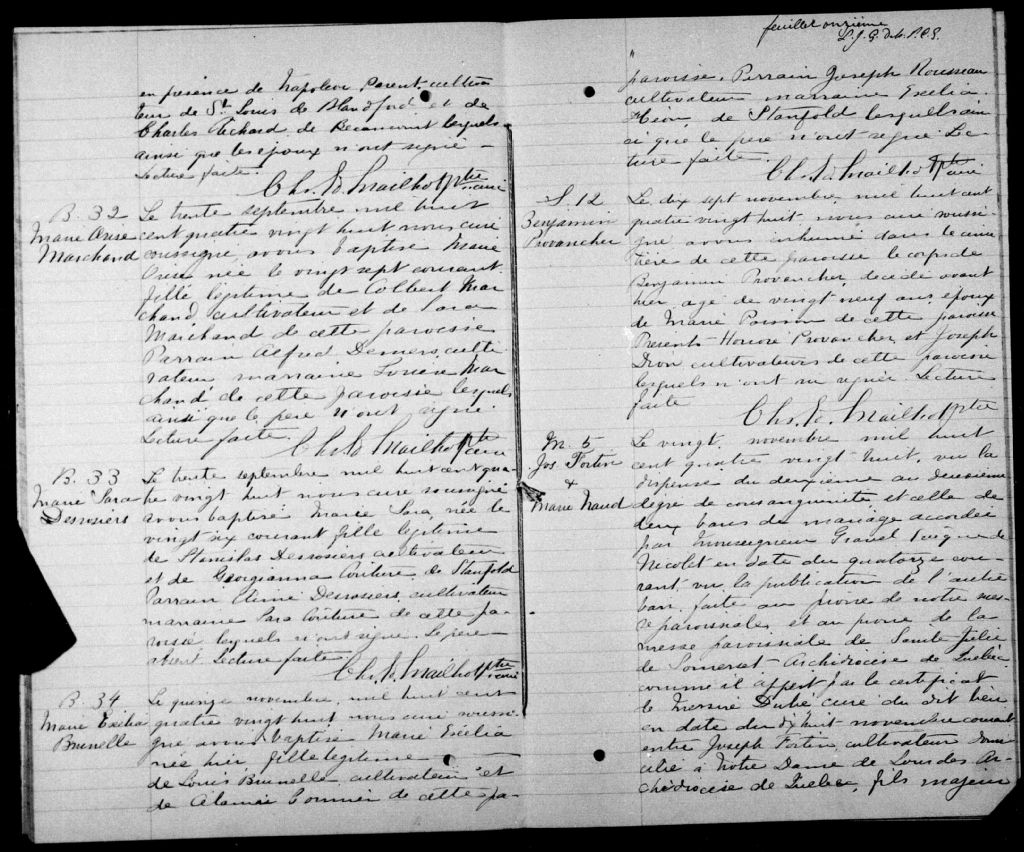 en présence de Napoléon Parent, cultiva
teur de St Louis de Blandford et de
Charles Richard de Becancourt lesquels
ainsi que les époux n'ont signé -
Lecture faite.
Ch. Ed. Mailhot Ptre
curé
B. 32
Marie Orise
Marchand
Le trente septembre mil huit
cent quatre vingt huit nous curé
soussigné avons baptisé Marie
Orise née le vingt sept courant
fille légitime de Colbert Mar
chand cultivateur et de Sara
Marchand de cette paroisse
Parrain Alfred Demers, culti
vateur marraine Louise Mar
chand de cette paroisse lesquels
ainsi que le père n'ont signé.
Lecture faite.
Ch. Ed. Mailhot Ptre
curé
B. 33
Marie Sara
Desrosiers
Le trente septembre mil huit cent qua
tre vingt huit nous curé soussigné
avons baptisé Marie Sara, née le
vingt six courant fille légitime
de Stanislas Desrosiers cultivateur
et de Georgianna Couture de Stanfold
Parrain Aimé Desrosiers, cultivateur
marraine Sara Couture de cette pa-
roisse lesquels n'ont signé. Le père
absent Lecture faite.
Ch. Ed. Mailhot Ptre
curé
B. 34
Marie Exélia
Brunelle
Le quinze novembre, mil huit cent
quatre vingt huit nous curé soussi-
gné avons baptisé Marie Exélia
née hier, fille légitime
de Louis Brunelle cultivateur et
de de cette pa-
feuillet onzième
L. J. G. Dep. P.C.S.
paroisse. Parrain Joseph Rousseau
cultivateur marraine Exelia
de Stanfold lesquels ain
si que le père n'ont signé Lec-
ture faite.
Ch. Ed. Mailhot Ptre
curé
S. 12
Benjamin
Provancher
Le dix sept novembre mil huit cent
quatre vingt huit nous curé soussi
gné avons inhumé dans le cime
tière de cette paroisse le corps de
Benjamin Provencher, décédé avant
hier, agé de vingt neuf ans, époux
de Marie Poisson de cette paroisse
Présents Honoré Provancher et Joseph
Dion cultivateurs de cette paroisse
lesquels n'ont su signer Lecture
faite
Ch. Ed. Mailhot Ptre
M. 5
Jos Fortin
+
Marie Naud
Le vingt, novembre mil huit
cent quatre vingt huit, vu la
dispense du deuxième au deuxième
dégré de consanguinité et celle de
deux bans de mariage accordée
par Monseigneur Gravel Evêque de
Nicolet en date du quatorze cou-
rant, vu la publication de l'autre
ban, faite au prone de notre mes-
se paroissiale, et au prone de la
messe paroissiale de Sainte Julie
de Somerset Archidiocèse de Québec
comme il appert par le certificat
de Messire Dubé curé du dit lieu
en date du dix huit novembre courant
entre Joseph Fortin, cultivateur domi
cilié à Notre Dame de Lourdes Ar-
chidiocèse de Québec, fils majeur